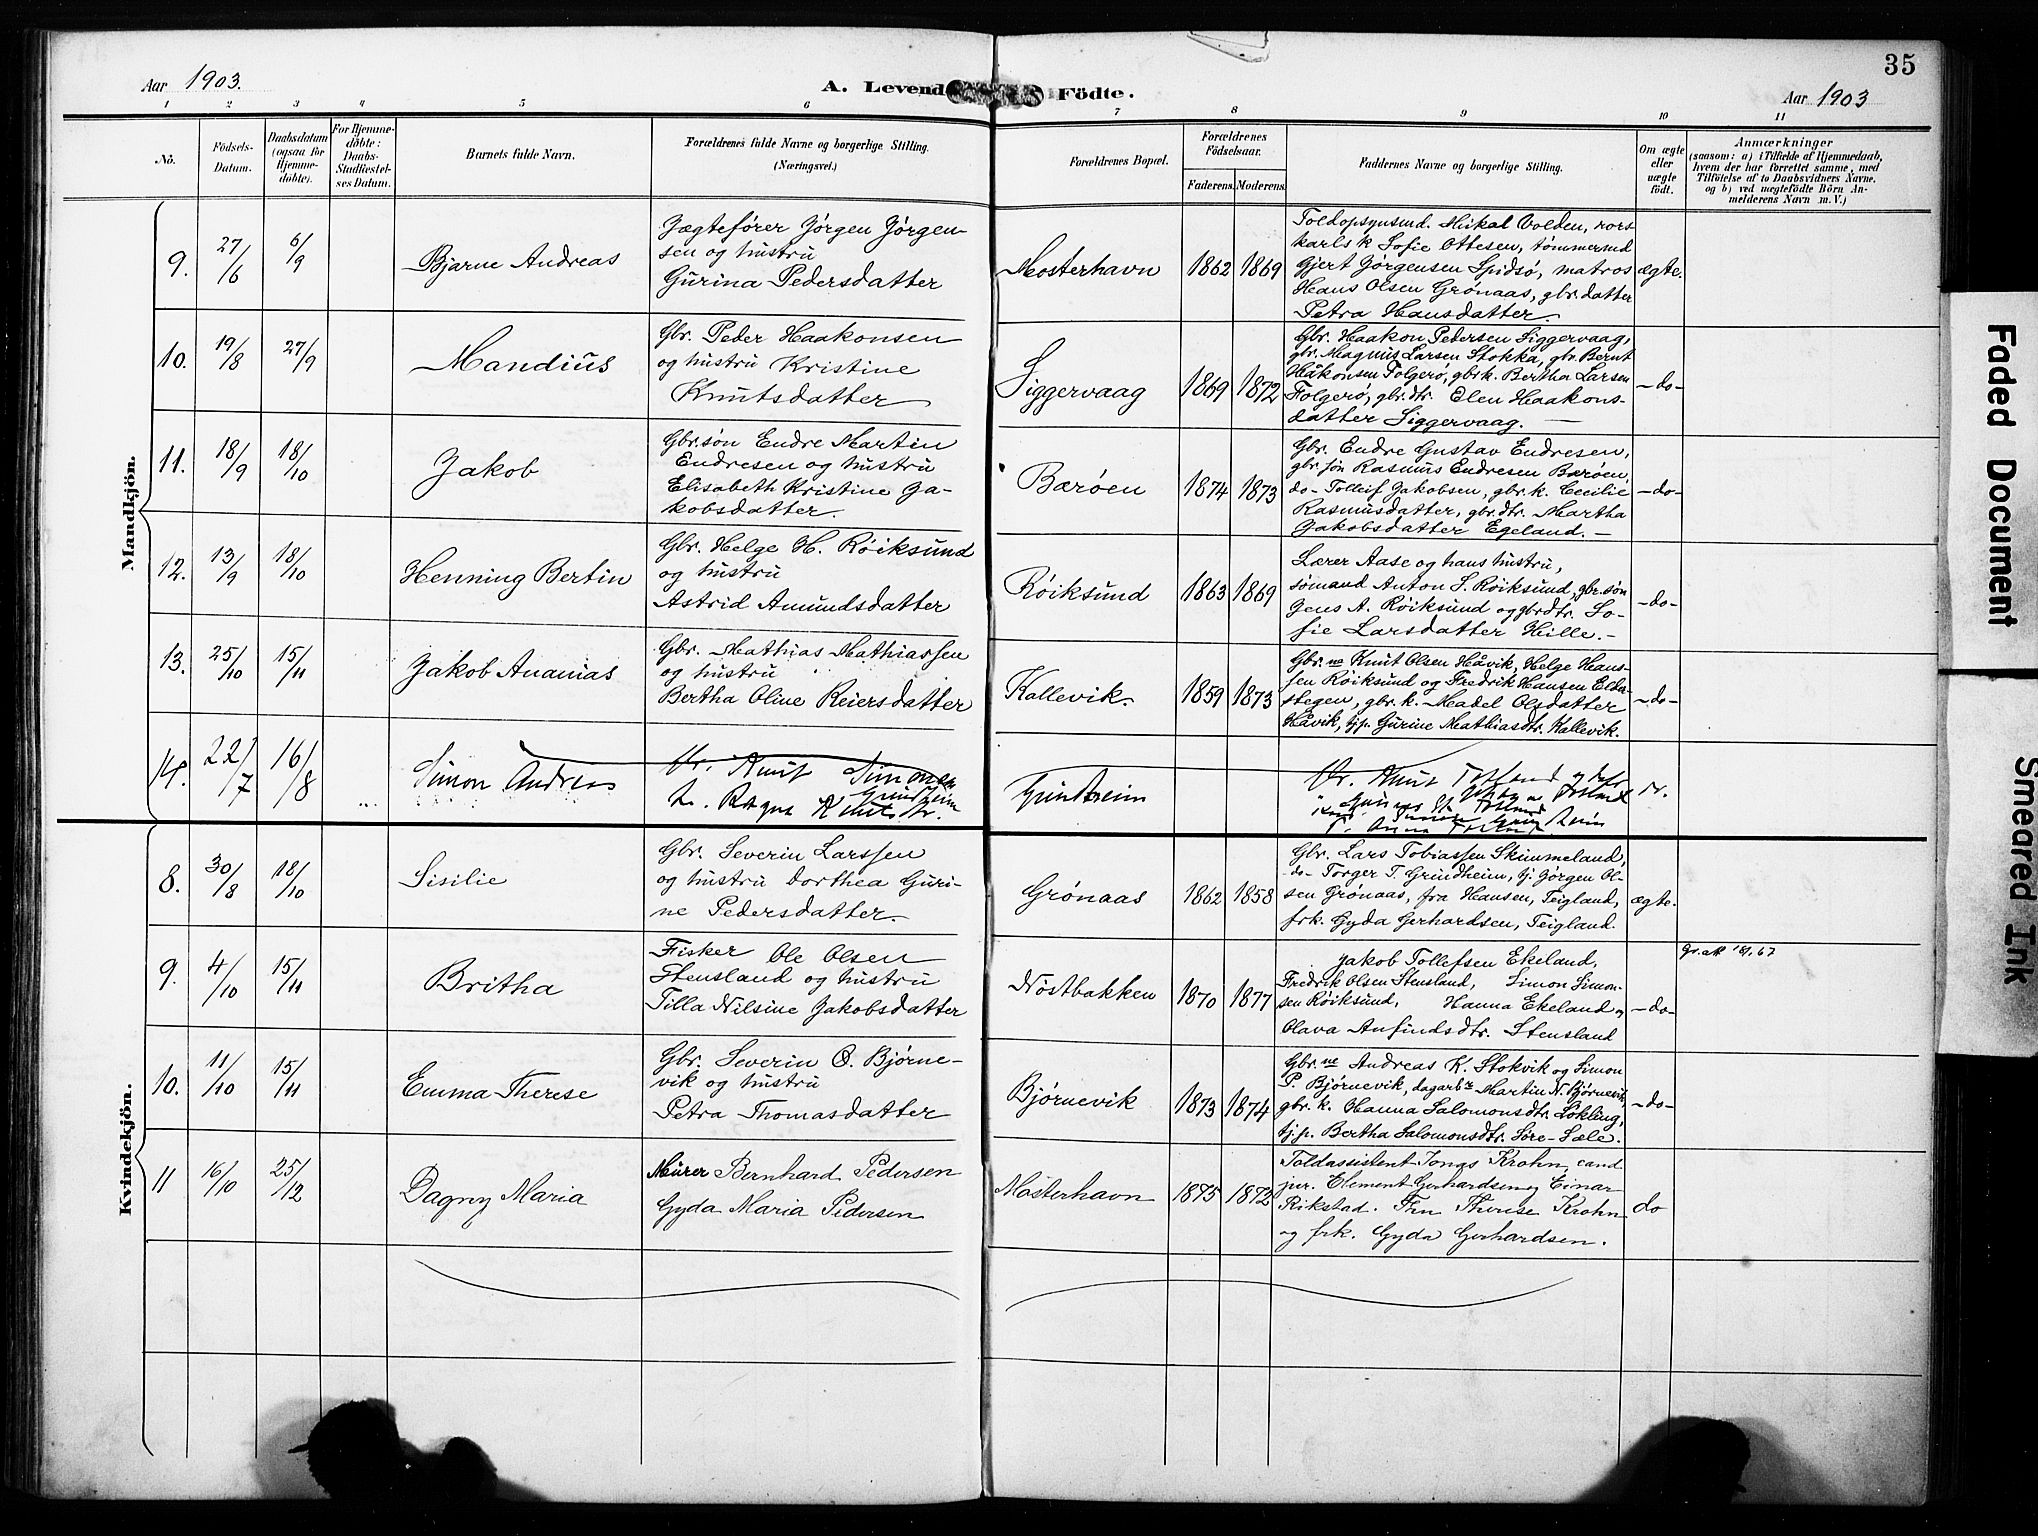 35
Aar 1903.
A. Levend Födte.
Aar 1903
1 2 3 4 5 6 7 8 9 10 11
No.
Födsels-
Datum.
Daabsdatum
(ogsaa for
Hjemme-
döbte).
For Hjemme-
döbte:
Daabs-
Stadfæstel-
ses Datum.
Barnets fulde Navn.
Forældrenes fulde Navne og borgerlige Stilling.
(Næringsvei.)
Forældrenes Bopæl.
Forældrenes
Födselsaar.
Faderens. Moderens.
Faddernes Navne og borgerlige Stilling.
Om ægte
eller
uægte
födt.
Anmærkninger
(saasom: a) i Tilfælde af Hjemmedaab,
hvem der har forrettet samme, med
Tilföielse af to Daabsvidners Navne.
og b) ved uægtefödte Börn An-
melderens Navn m. V.)
Mandkjön.
9. 27/6 6/9
Bjarne Andreas
Jægtefører Jørgen Jørgen-
sen og hustru
Gurina Pedersdatter
Mosterhavn 1862 1869
Toldopsynsmd. Mikal Volden, rors-
karls k Sofie Ottesen, tømmermd
Gjert Jørgensen Spidsø, matros
Hans Olsen Grønaas, gbr. datter
Petra Hansdatter.
ægte.
10. 19/8 27/9
Mandius
Gbr. Peder Haakonsen
og hustru Kristine
Knutsdatter
Siggervaag 1869 1872
Gbr. Haakon Pedersen Siggervaag,
gbr. Magnus Larsen Stokka, gbr. Bernt
Håkonsen Folgerø, gbr k. Bertha Larsen
Folgerø, gbr. dtr. Elen Haakons-
datter Siggervaag.
-do-
11. 18/9 18/10
Jakob
Gbr. søn Endre Martin
Endresen og hustru
Elisabeth Kristine Ja-
kobsdatter.
Bærøen 1874 1873
Gbr. Endre Gustav Endresen,
gbr. søn Rasmus Endresen Bærøen,
do- Tolleif Jakobsen, gbr. k. Cecilie
Rasmusdatter, gbr. dtr. Martha
Jakobsdatter Egeland.
-do-
12. 13/9 18/10
Henning Bertin
Gbr. Helge H. Røiksund
og hustru
Astrid Amundsdatter
Røiksund 1863 1869
Lærer Aase og hans hustru,
sømand Anton S. Røiksund, gbr. søn
Jens A. Røiksund og gbrdtr. So-
fie Larsdatter Hille.
-do-
13. 25/10 15/11
Jakob Ananias
Gbr. Mathias Mathiassen
og hustru
Bertha Oline Reiersdatter
Kallevik. 1859 1873
Gbr.ne Knut Olsen Håvik, Helge Hans-
sen Røiksund og Fredrik Hansen
stegen, gbr. k. Madel Olsdatter
Håvik, tjp. Gurine Mathiasdtr. Kallevik.
-do-
14. 22/7 16/8
Simon Andreas
Knut Simonsen
Grindheim
Ragna Knutsdtr.
Grindheim
Knut
Kvindekjön.
8. 30/8 18/10
Sisilie
Gbr. Severin Larssen
og hustru Dorthea Guri-
ne Pedersdatter.
Grønaas 1862 1858
Gbr. Lars Tobiassen Skimmeland,
do- Torger T. Grindheim, tj. Jørgen Ol-
sen Grønaas, fra Hansen, Teigland,
frk. Gyda Gerhardsen, Teigland.
ægte.
9. 4/10 15/11
Britha
Fisker Ole Olsen
Stensland og hustru
Tilla Nilsine Jakobsdatter
Nøstbakken 1870 1877
Jakob Tollefsen Ekeland,
Fredrik Olsen Stensland, Simon Simon-
sen Røiksund, Hanna Ekeland og
Olava Anfindsdtr. Stensland
-do-
10. 11/10 15/11
Emma Therese
Gbr. Severin O. Bjørne-
vik og hustru
Petra Thomasdatter
Bjørnevik 1873 1874
Gbr.ne Andreas K. Stokvik og Simon
P. Bjørnevik, dagarb. Martin N. Bjørnevik,
gbr. k. Hanna Salomonsdtr. Løkling,
tj.p. Bertha Salomonsdtr. Søre-Sæle.
-do-
11 16/10 25/12
Dagny Maria
Murer Bernhard Pedersen
Gyda Maria Pedersen
Mosterhavn 1875 1872
Toldassistent Jonas Krohn, cand
jur. Clement Gerhardsen og Einar
Rikstad. Fru Therese Krohn
og frk. Gyda Gerhardsen.
do
Faded Document
Smeared Ink